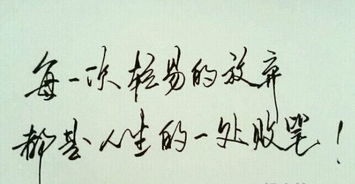 每一次轻易的放弃
都是人生的一处败笔！